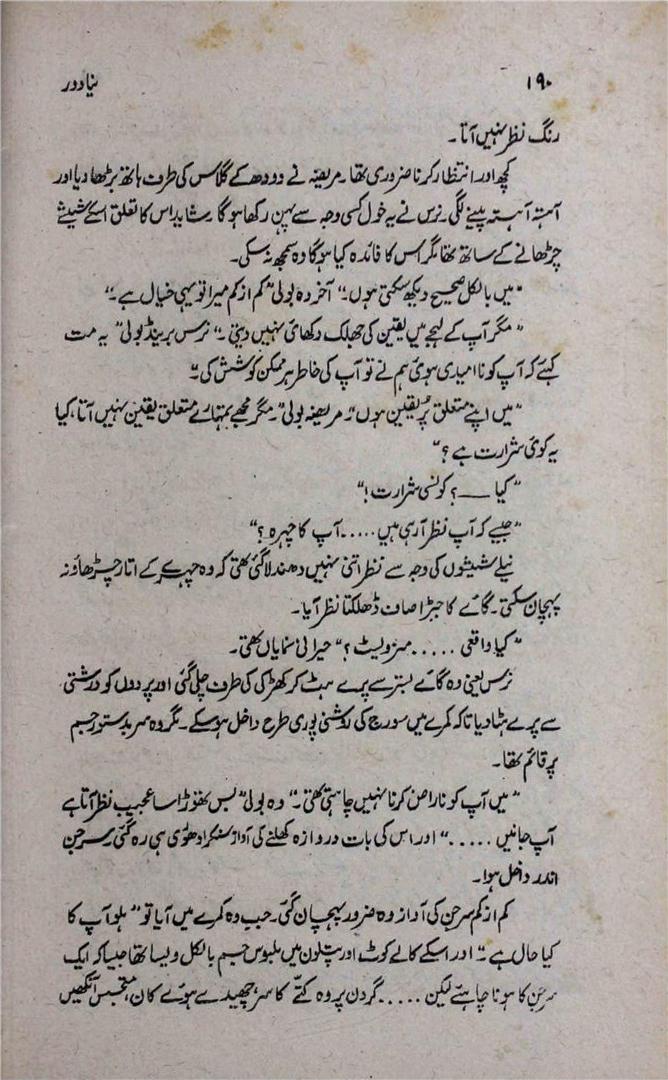 ۱۹۰
نیا دور
رنگ نظر نہیں آتا۔
کچھ اور انتظار کرنا ضروری تھا۔ مریضہ نے دودھ کے گلاس کی طرف ہاتھ بڑھا دیا اور
آہستہ آہستہ پینے لگی۔ نرس نے یہ خول کسی وجہ سے پہن رکھا ہوگا۔ شاید اس کا تعلق اسکے شیشے
چڑھانے کے ساتھ تھا مگر اس کا فائدہ کیا ہوگا وہ سمجھ نہ سکی۔
"میں بالکل صحیح دیکھ سکتی ہوں۔" آخر وہ بولی "کم از کم میرا تو یہی خیال ہے۔"
"مگر آپ کے لہجے میں یقین کی جھلک دکھائی نہیں دیتی۔" نرس برینڈ بولی "یہ مت
کہئے کہ آپ کو نا امیدی ہوئی ہم نے تو آپ کی خاطر ہر ممکن کوشش کی۔"
"میں اپنے متعلق پُر یقین ہوں" مریضہ بولی "مگر مجھے تمہارے متعلق یقین نہیں آتا، کیا
یہ کوئی شرارت ہے؟"
"کیا ـــــ؟ کونسی شرارت!"
"جیسے کہ آپ نظر آرہی ہیں ..... آپ کا چہرہ؟"
نیلے شیشوں کی وجہ سے نظر اتنی نہیں دھندلا گئی تھی کہ وہ چہرے کے اتار چڑھاؤ نہ
پہچان سکتی۔ گائے کا جبڑا صاف ڈھلکتا نظر آیا۔
"کیا واقعی ..... مسز ویسٹ؟" حیرانی نمایاں تھی۔
نرس یعنی وہ گائے بستر سے پرے ہٹ کر کھڑکی کی طرف چلی گئی اور پردوں کو درشتی
سے پرے ہٹا دیا تاکہ کمرے میں سورج کی روشنی پوری طرح داخل ہو سکے۔ مگر وہ سر بدستور جسم
پر قائم تھا۔
"میں آپ کو ناراض کرنا نہیں چاہتی تھی۔" وہ بولی "بس تھوڑا سا عجیب نظر آتا ہے
آپ جانیں ....." اور اس کی بات دروازہ کھلنے کی آواز سنکر ادھوری ہی رہ گئی۔ سرجن
اندر داخل ہوا۔
کم از کم سرجن کی آواز وہ ضرور پہچان گئی۔ جب وہ کمرے میں آیا تو "ہلو آپ کا
کیا حال ہے۔" اور اسکے کالے کوٹ اور پتلون میں ملبوس جسم بالکل ویسا تھا جیسا کہ ایک
سرجن کا ہونا چاہئے لیکن ..... گردن پر وہ کتے کا سر، چھیدے ہوئے کان، متجسس آنکھیں